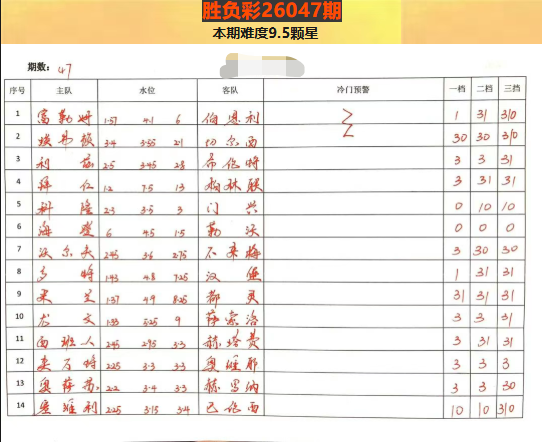 胜负彩26047期
本期难度9.5颗星
期数: 47
序号 主队 水位 客队 冷门预警 一档 二档 三档
1 富勒姆 1·57 4·1 6 伯恩利 1 31 310
2 埃弗顿 3·4 3·55 2·1 切尔西 30 30 310
3 利兹 2·5 3·45 2·8 布伦特 3 3 31
4 拜仁 1·2 7·5 13 柏林联 3 31 31
5 科隆 2·3 3·5 3 门兴 0 10 10
6 海登 6 4·5 1·5 勒沃 0 0 0
7 沃尔夫 2·45 3·6 2·75 不来梅 3 30 30
8 多特 1·43 4·8 7·25 汉堡 1 31 31
9 米兰 1·37 4·9 8·25 都灵 31 31 31
10 尤文 1·33 5·25 9 萨索洛 3 3 31
11 西班人 2·45 2·95 3·3 赫塔费 3 31 31
12 莱万特 2·25 3·3 3·3 奥维耶 3 3 3
13 奥萨苏 2·2 3·4 3·3 赫罗纳 3 3 30
14 塞维利 2·25 3·15 3·4 巴伦西 10 10 310